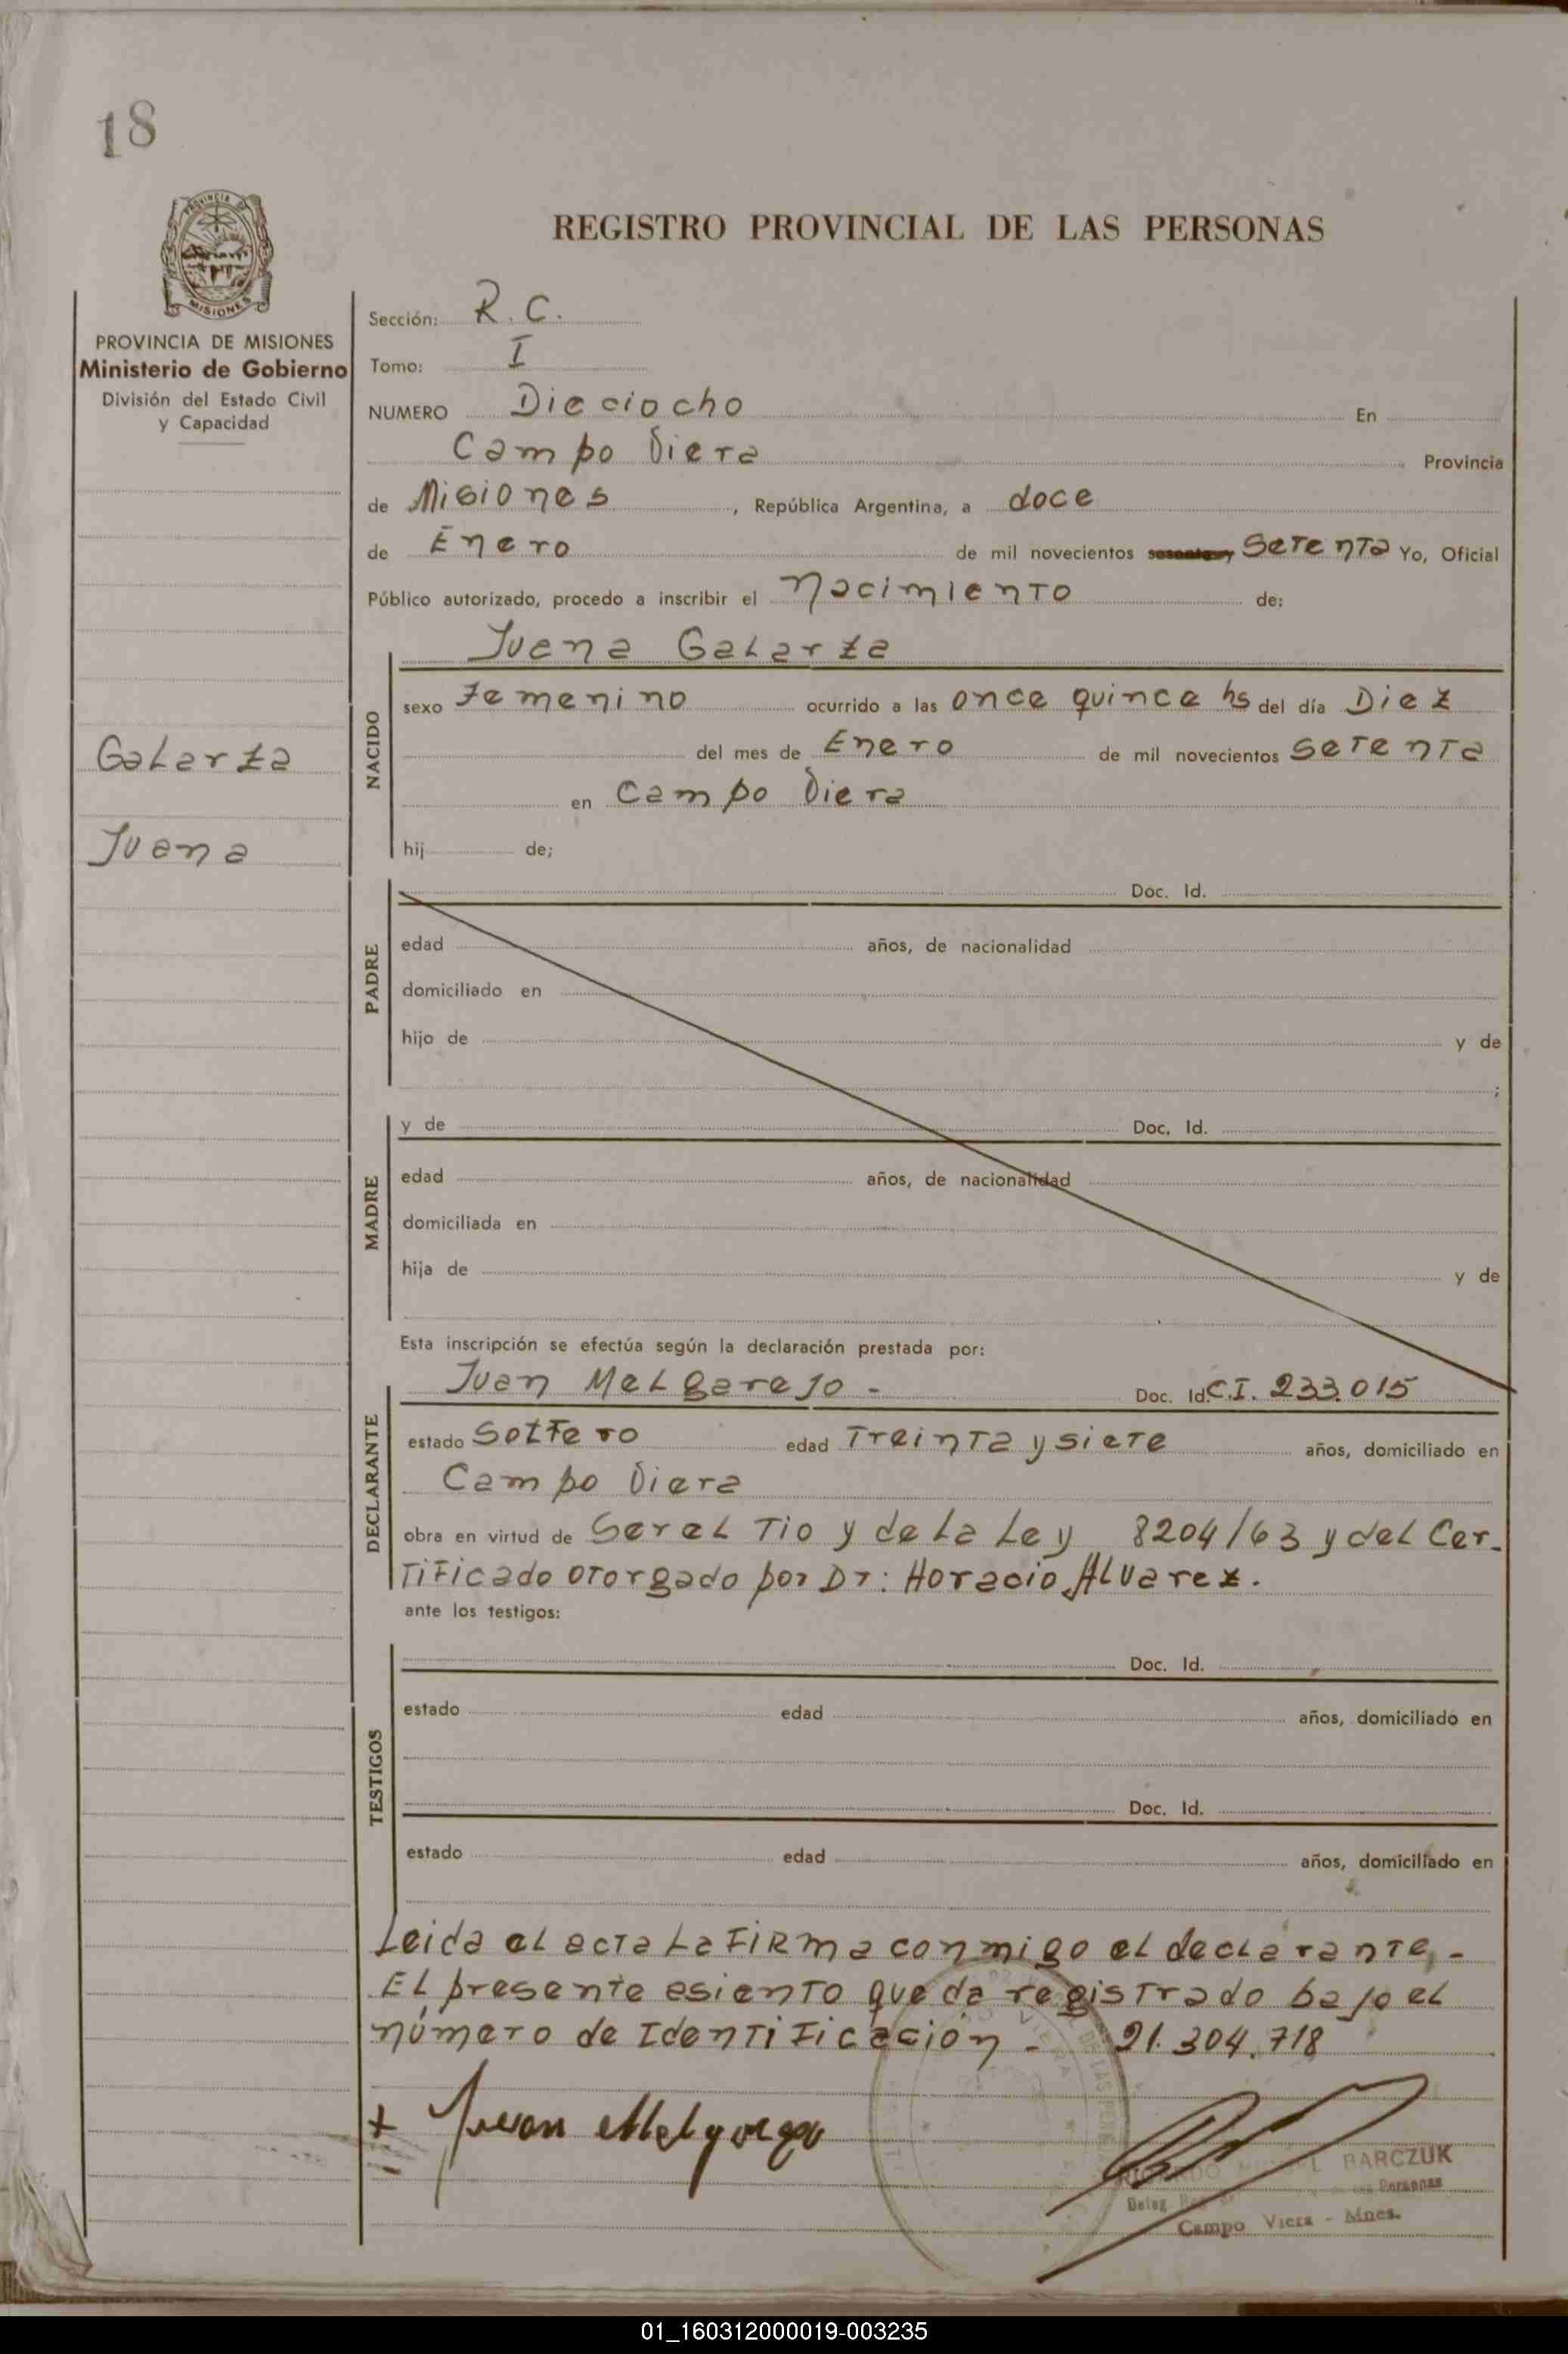 18
PROVINCIA DE
MISIONES
PROVINCIA DE MISIONES
Ministerio de Gobierno
División del Estado Civil
y Capacidad
Galarza
Juana
REGISTRO PROVINCIAL DE LAS PERSONAS
Sección: R. C.
Tomo: I
NUMERO Dieciocho En
Campo Viera Provincia
de Misiones, República Argentina, a doce
de Enero de mil novecientos Setenta Yo, Oficial
Público autorizado, procedo a inscribir el Nacimiento de:
Juana Galarza
NACIDO
sexo Femenino ocurrido a las once quince hs del día Diez
del mes de Enero de mil novecientos Setenta
en Campo Viera
hij de;
PADRE
Doc. Id.
edad años, de nacionalidad
domiciliado en
hijo de y de
;
MADRE
y de Doc. Id.
edad años, de nacionalidad
domiciliada en
hija de y de
Esta inscripción se efectúa según la declaración prestada por:
DECLARANTE
Juan Melgarejo - Doc. Id. C.I. 233.015
estado Soltero edad Treinta y siete años, domiciliado en
Campo Viera
obra en virtud de Ser el Tio y de la Ley 8204/63 y del Cer-
tificado otorgado por Dr: Horacio Alvarez.
ante los testigos:
TESTIGOS
Doc. Id.
estado edad años, domiciliado en
Doc. Id.
estado edad años, domiciliado en
Leida el acta la firma conmigo el declarante, -
El presente asiento queda registrado bajo el
número de Identificación - 21.304.718
+ Juan Melgarejo
BARCZUK
Deleg Personas
Campo Viera - Mnes.
01_160312000019-003235